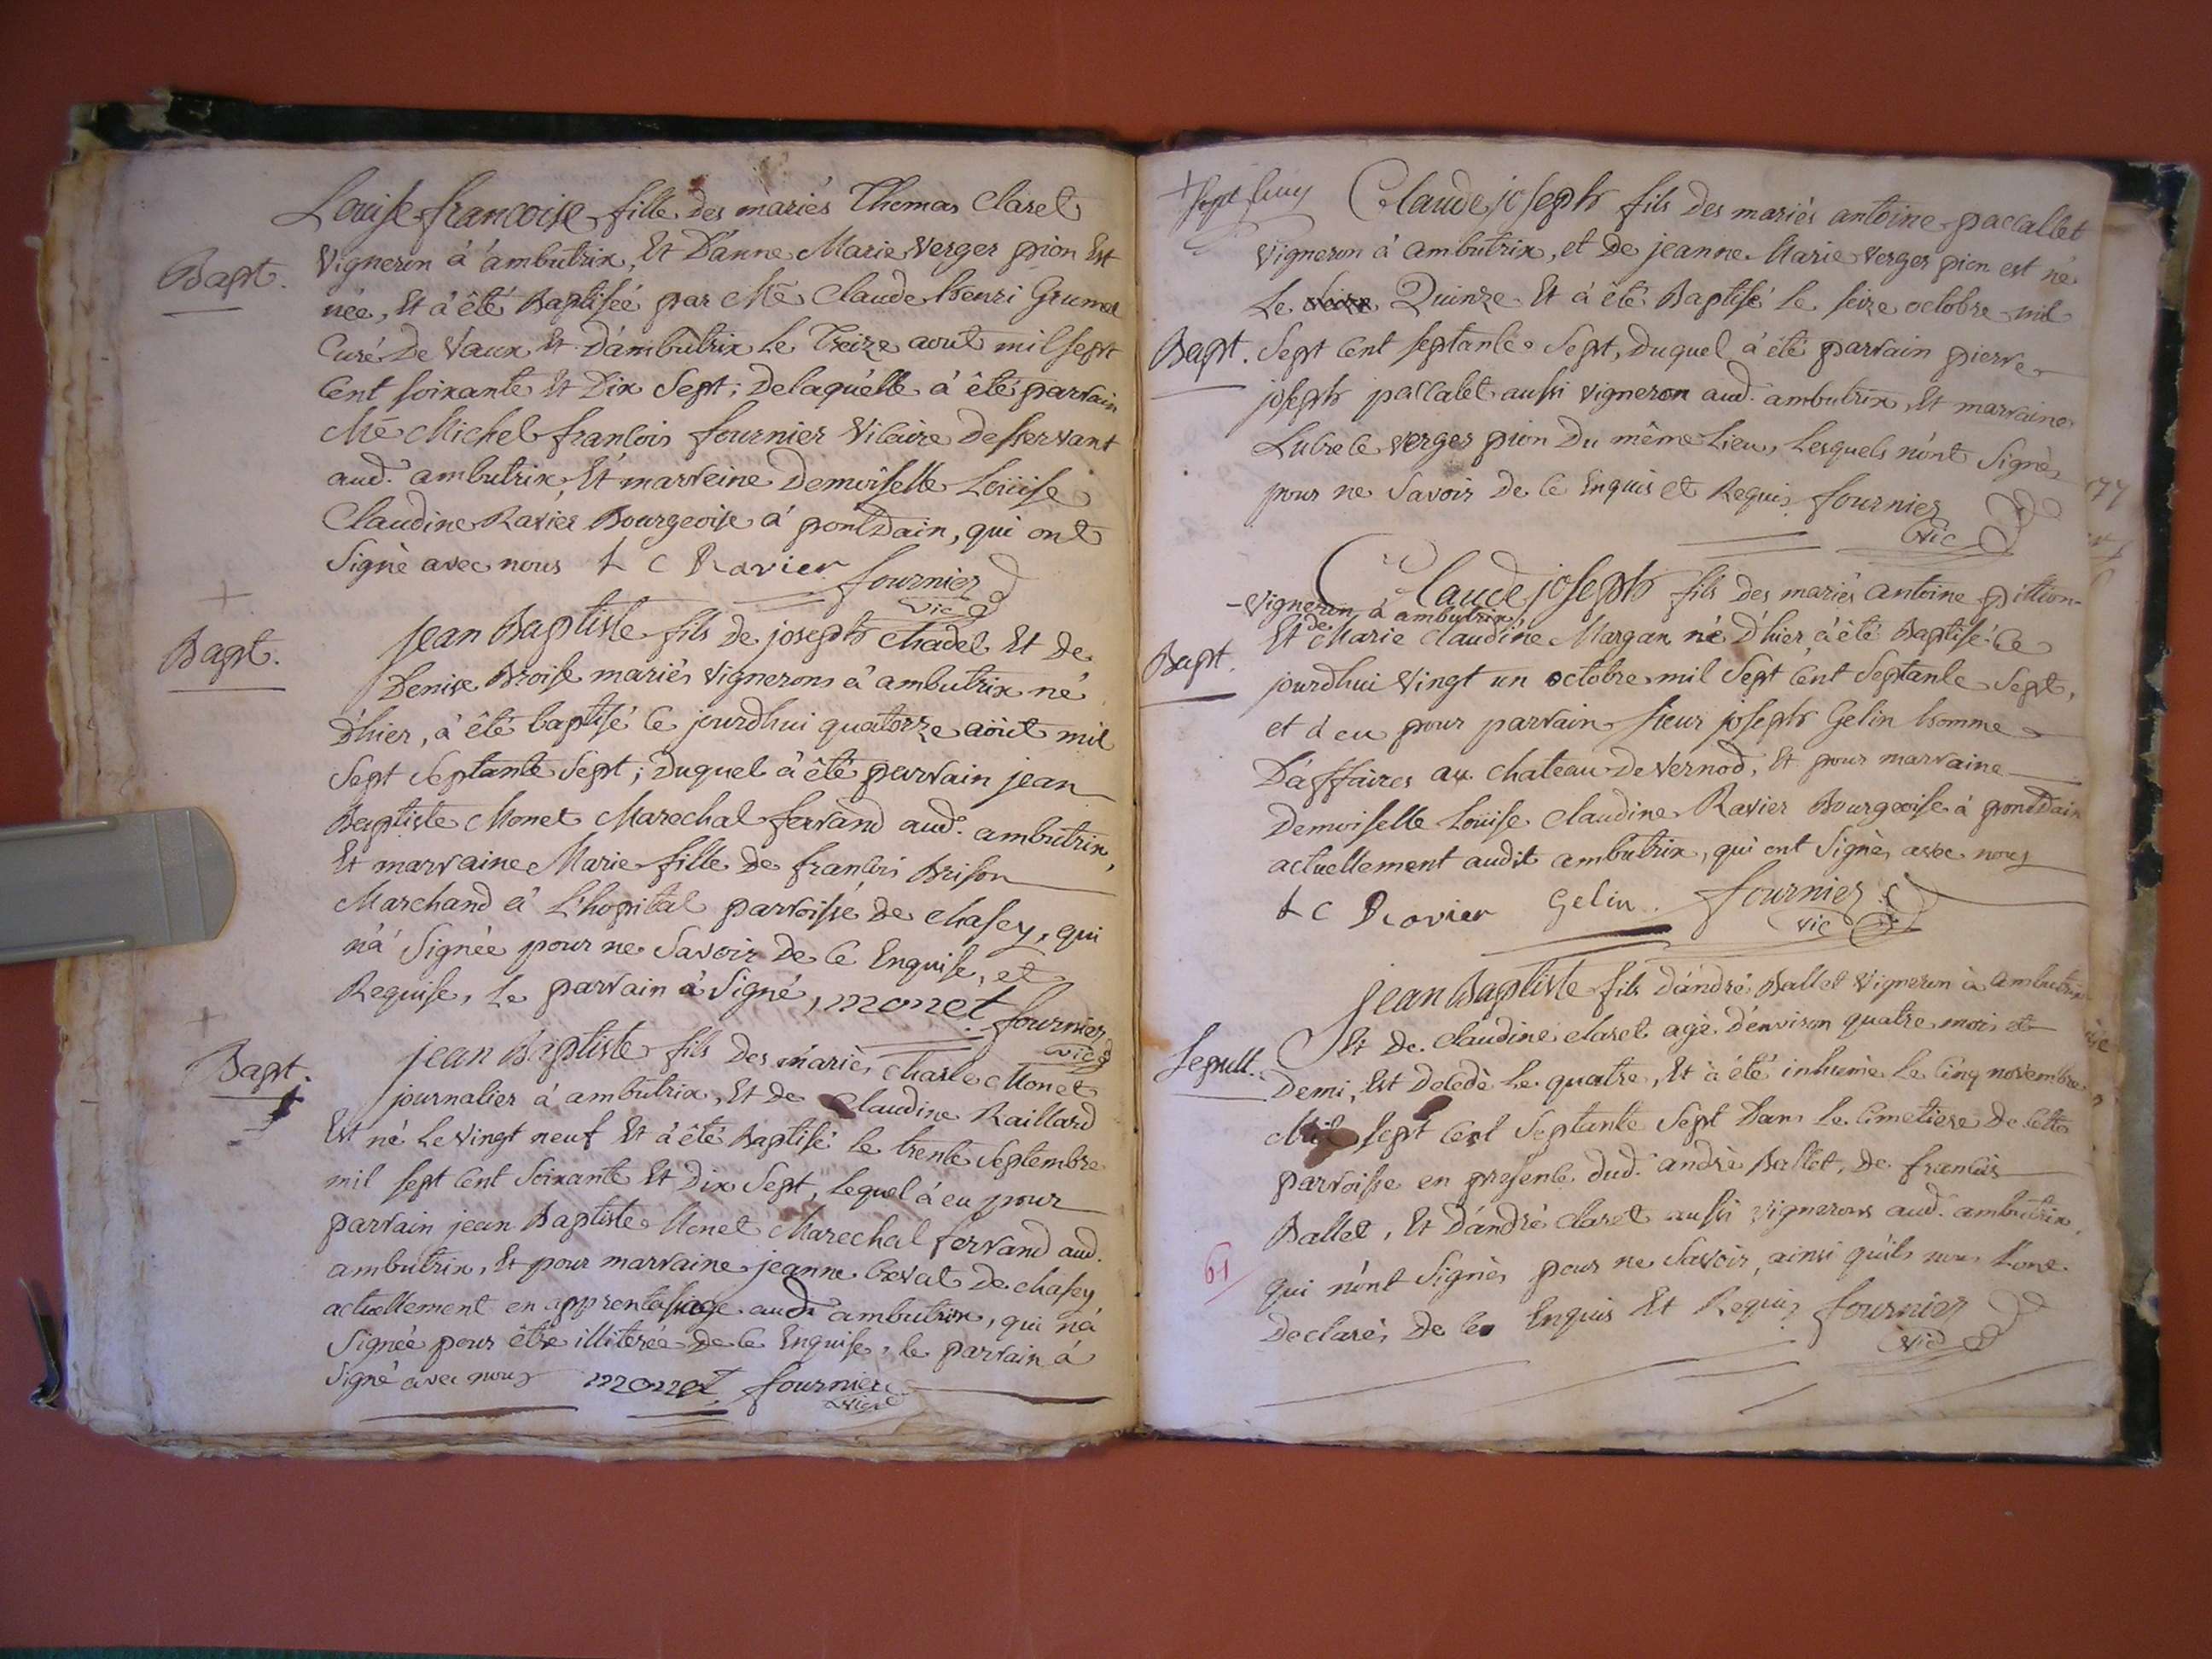 Louise francoise fille des mariés Thomas Claret
Bapt.
Vigneron à ambutrix, Et D'anne Marie Verger pion Est
née, Et à êté Baptisée par Me Claude henri Grumet
Curé De Vaux Et D'ambutrix Le Treize aout mil sept
Cent soixante Et Dix Sept; Delaquelle à êté parrain
Me Michel francois fournier Vicaire Desservant
aud. ambutrix, Et marreine Demoiselle Loüise
Claudine Ravier Bourgeoise à pontDain, qui ont
Signé avec nous L C Ravier fournier
vic
Bapt.
Jean Baptiste fils de joseph Chadel Et De
Denise Broise mariés Vignerons à ambutrix né
D'hier, à êté baptisé Ce jourdhui quatorze août mil
Sept Septante Sept; Duquel à êté parrain jean
Baptiste Monet Marechal ferrand aud. ambutrix,
Et marraine Marie fille De francois Brison
Marchand à L'hopital parroisse De Chasey, qui
n'à Signée pour ne Savoir De Ce Enquise, et
Requise, Le parrain à Signé, monet fournier
vic
Bapt.
jean Baptiste fils Des mariés Charle Monet
journalier à ambutrix, Et De Claudine Raillard
Est né Le Vingt neuf Et à êté Baptisé Le trente Septembre
mil sept Cent Soixante Et Dix Sept, Lequel à eu pour
parrain jean Baptiste Monet Marechal ferrand aud.
ambutrix, Et pour marraine jeanne Crevat De Chasey
actuellement en apprentasage aud. ambutrix, qui n'à
Signée pour être illiterée De Ce Enquise, le parrain à
Signé avec nous monet fournier
vic
Claude joseph fils Des mariés antoine paccallet
Vigneron à ambutrix, et De jeanne Marie Verger pion est né
Le Quinze Et à êté Baptisé Le seize octobre mil
Bapt.
Sept Cent septante Sept, Duquel à été parrain pierre
joseph paccalet aussi Vigneron aud. ambutrix, Et marraine
Lucrece Verger pion Du même Lieu, Lesquels n'ont Signés
pour ne Savoir De Ce Enquis et Requis fournier
vic
Claude joseph fils Des mariés antoine pittion
Vigneron à ambutrix
Et de Marie Claudine Margan né D'hier, à êté Baptisé Ce
Bapt.
jourdhui Vingt un octobre mil Sept Cent Septante Sept,
et à eu pour parrain Sieur joseph Gelin homme
D'affaires au Chateau De Vernod, Et pour marraine
Demoiselle Loüise Claudine Ravier Bourgeoise à pontDain
actuellement audit ambutrix, qui ont Signés avec nous
L C Ravier Gelin fournier
vic
Jean Baptiste fils D'andré Ballet Vigneron à ambutrix
Et De Claudine Claret agé D'environ quatre mois et
Sepult.
Demi, Est Decedé Le quatre, Et à été inhumé Le Cinq novembre
Mil Sept Cent Septante Sept Dans Le Cimetiere De Cette
parroisse en presence dud. andré Ballet, De francois
Ballet, Et D'andré Claret aussi Vignerons aud. ambutrix
61
qui n'ont Signés pour ne Savoir, ainsi qu'ils nous L'ont
Declarés De Ce Enquis Et Requis fournier
vic